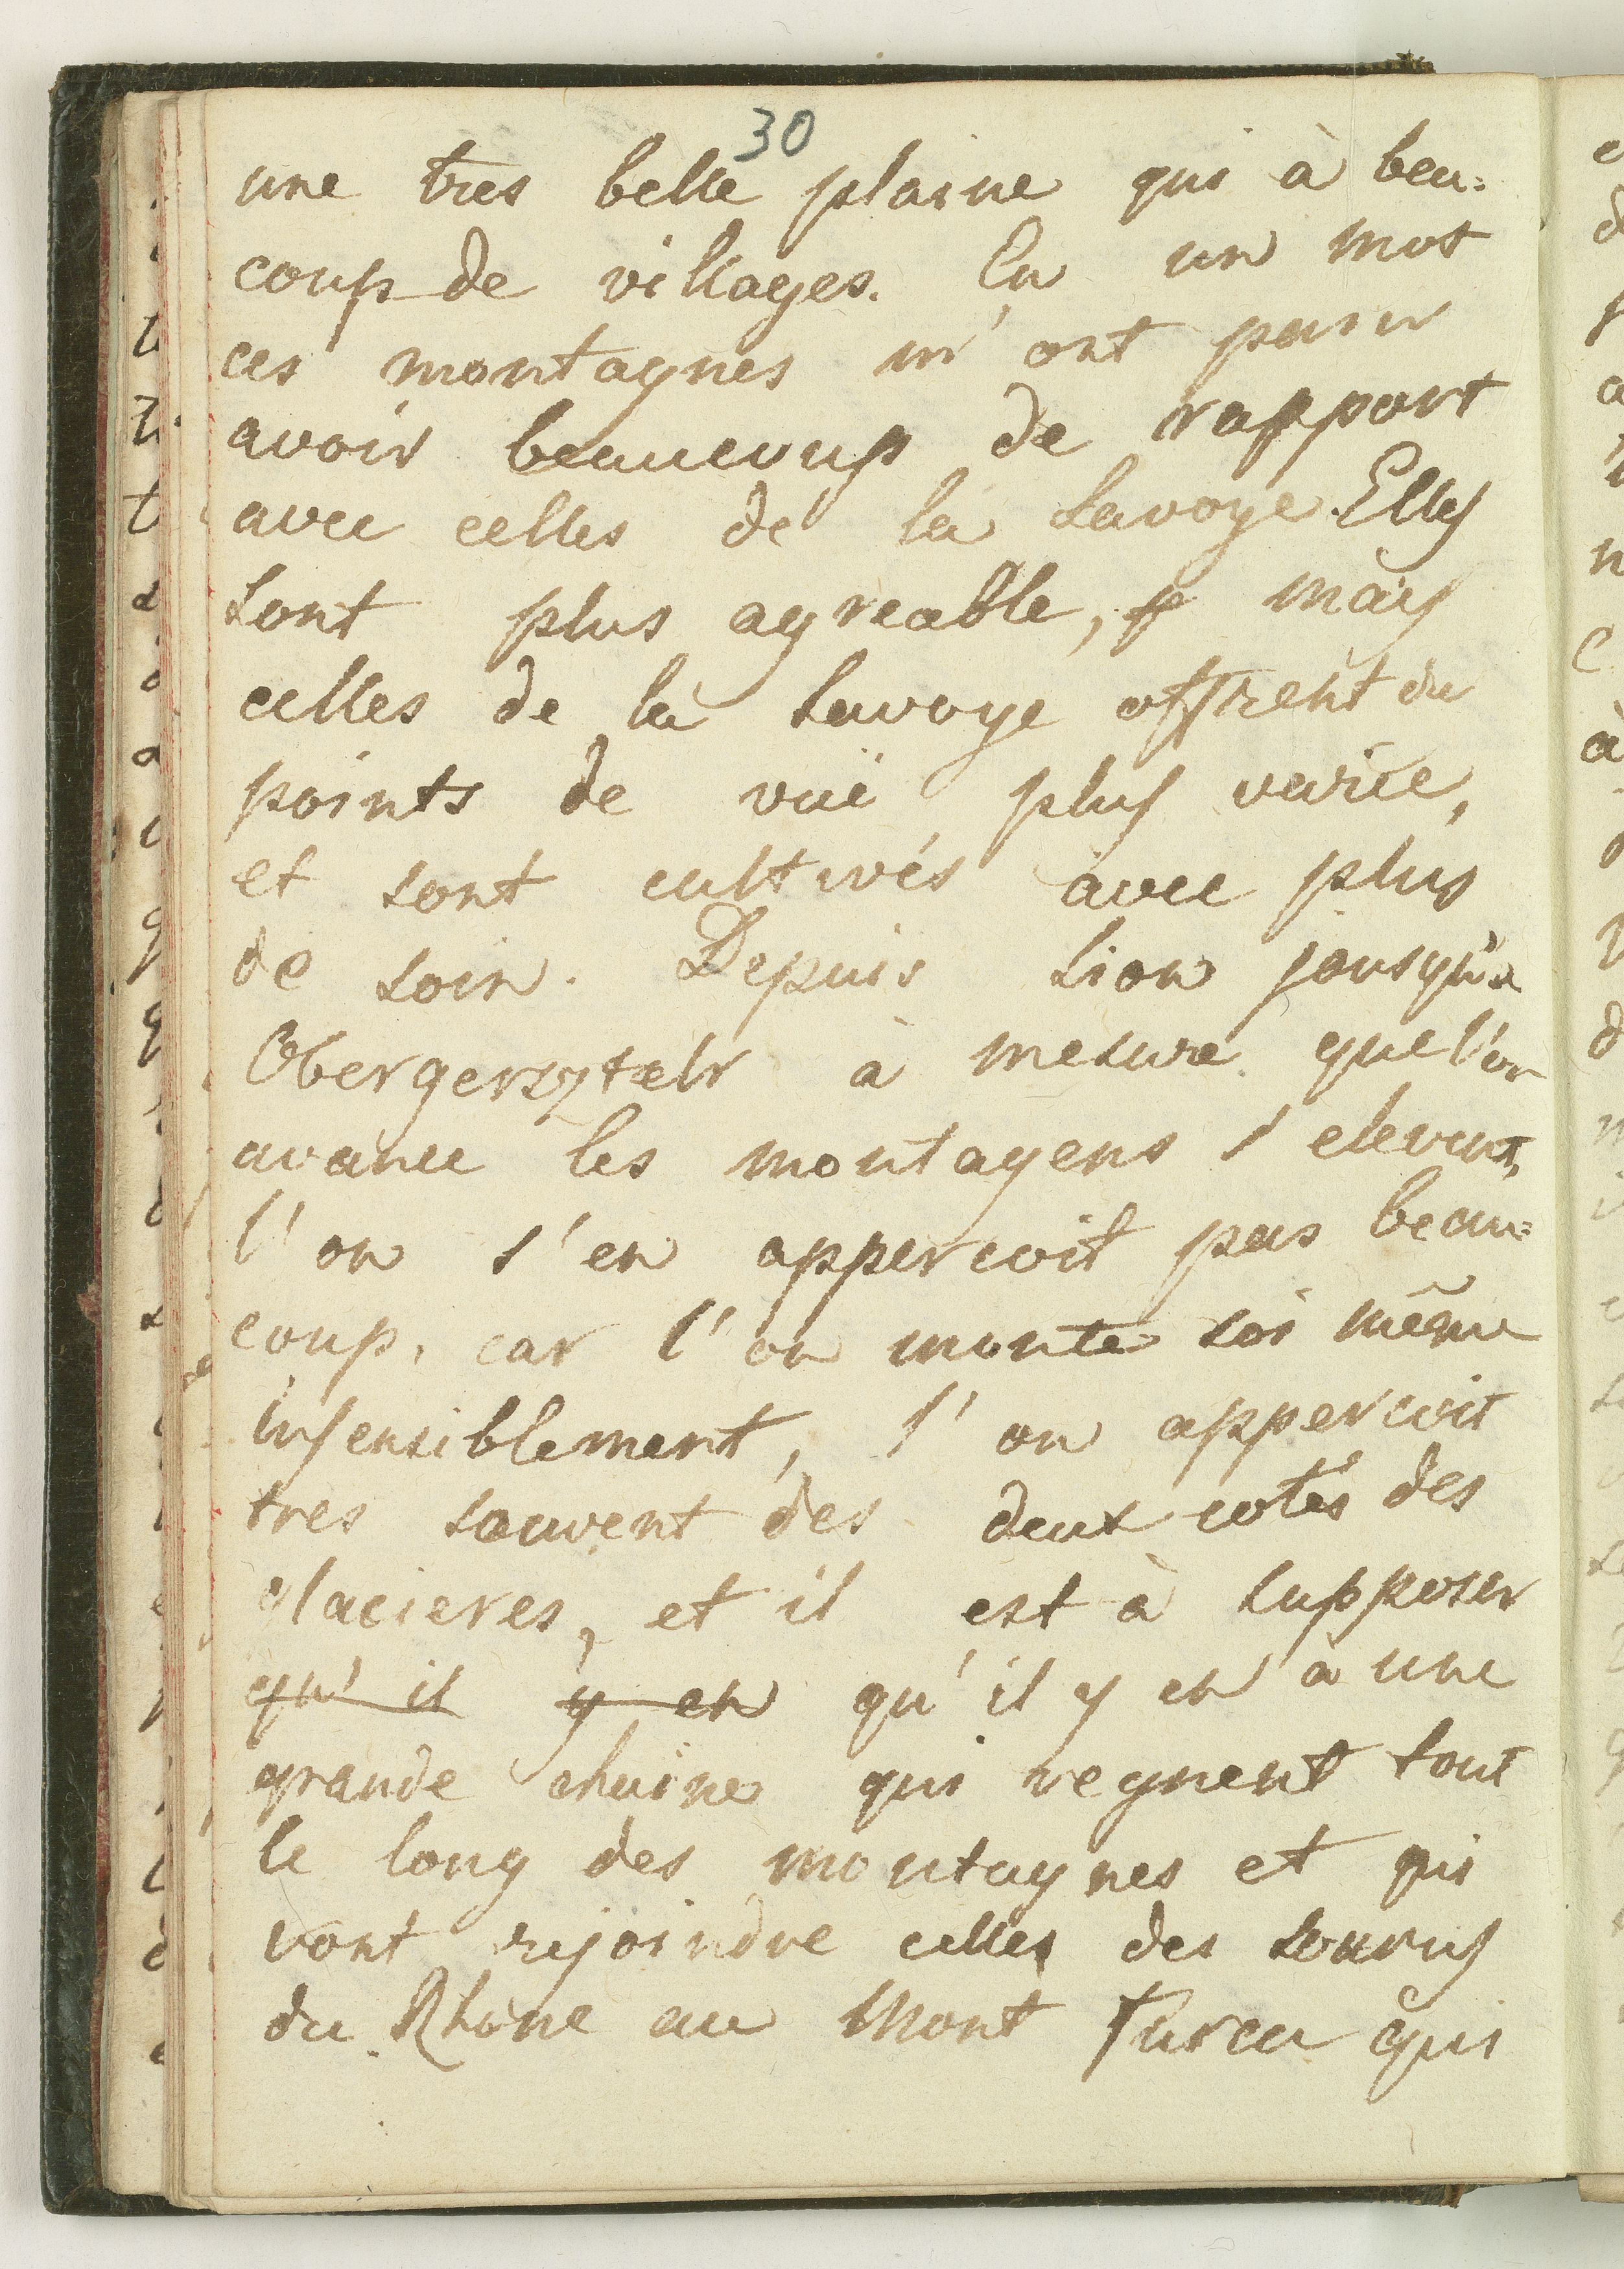 30
une tres belle plaine qui à beu=
coup de villages. En un mot
ces montagnes m'ont paru
avoir beaucoup de rapport
avec celles de la Savoye. Elles
sont plus agreable, mais
celles de la Savoye offrent du
points de vuë plus varice,
et sont cultivés avec plus
de soin. Depuis Sion jousqu'a
Obergersztelr à mesure que l'on
avance les montagens s'elevent,
l'on s'en appercoit pas beau=
coup, car l'on monte soi même
insensiblement, l'on appercoit
tres souvent des deux cotés des
glacieres, et il est à supposer
qu'il y en qu'il y en à une
grande chaine qui regnent tout
le long des montagnes et qui
vont rejoindre celles des sources
du Rhône au Mont Furca qui